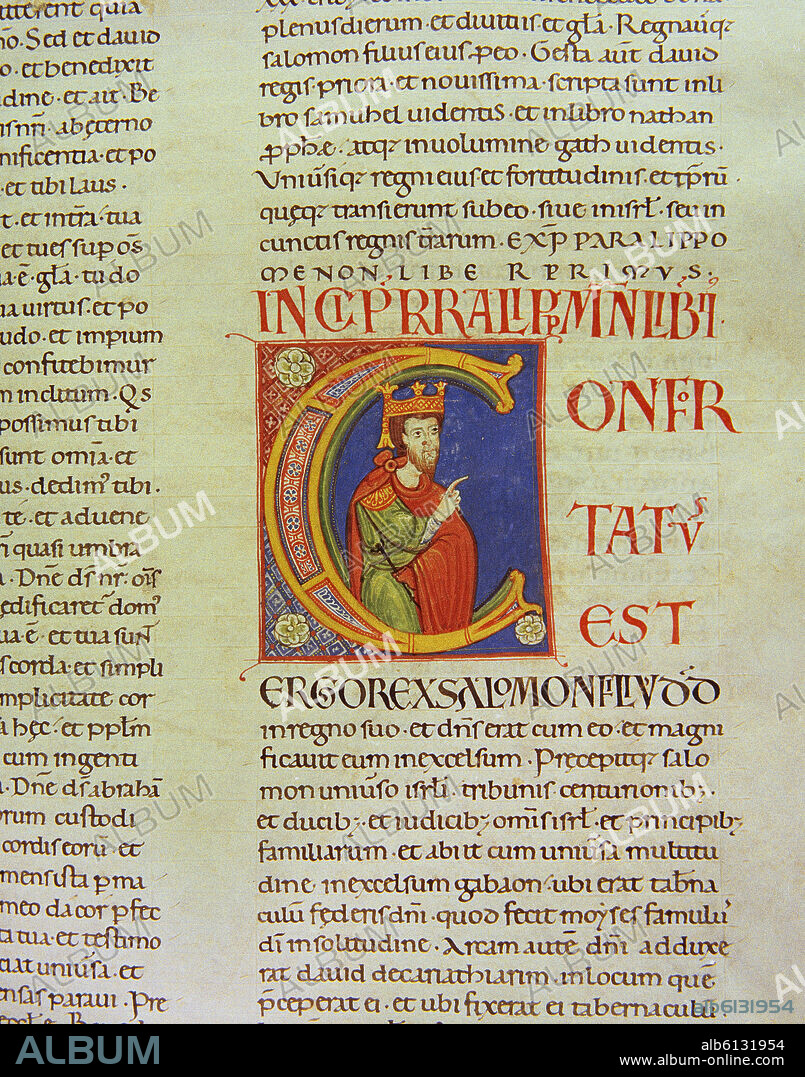 itterent quia
n̄o. Sed et dauid
o. et benedixit
udine. et ait. Be
isnr̄i. abęterno
nificentia. et po
. et tibi laus.
t. et int̄ra. tua
et tu es sup om̄s
ua. ē. gl̄a. tu do
na uirtus. et po
udo. et imp̄ium
confitebimur
m inclitum. Qs
possimus tibi
sunt om̄ia. et
us. dedim' tibi.
te. et aduene
ri quasi umbra
a. Dn̄e d̄s nr̄. om̄s
ędificaret dom'
ua. ē. et tua sun̄
scorda. et simpli
mplicitate cor
a hęc. et ppl̄m
cum ingenti
a. Dn̄e d̄s abrahā
orum custodi
cordis eorū. et
mens ista p ma
meo da cor pfec
ta tua. et testimo
ciat uniūsa. et
ensas paraui. Pre
plenus dierum et diuitiis et gl̄a. Regnauitqꝫ
salomon filius eius p eo. Gesta aut̄ dauid
regis priora. et nouissima. scripta sunt in li
bro samuhel uidentis. et in libro nathan
pphæ. atqꝫ inuolumine gath uidentis.
Uniūsiqꝫ regni eius et fortitudinis. et tp̄rū
quęqꝫ transierunt sub eo. siue in isrl̄. seu in
cunctis regnis t̄rarum. EXP̄ PARALIPPO
MENON. LIBER PRIMUS.
INCIP̄ PARALIPPMN̄ LIB̄ II.
C
ONFOR
TATUS
EST
ERGO REX SALOMON FILIUS DD
in regno suo. et dn̄s erat cum eo. et magni
ficauit eum in excelsum. Pręcepitqꝫ salo
mon uniūso isrl̄i. tribunis. centurionibꝫ.
et ducibꝫ. et iudicibꝫ om̄is isrl̄. et principibꝫ
familiarum. et abiit cum uniūsa multitu
dine in excelsum gabaon. ubi erat tab̄na
culū fęderis dn̄i. quod fecit moyses famulu'
dī in solitudine. Arcam autē dn̄i adduxe
rat dauid decariathiarim. in locum quē
p̄ceperat ei. et ubi fixerat ei tabernaculū.
ALBUM
alb6131954
ALBUM
alb6131954
www.album-online.com